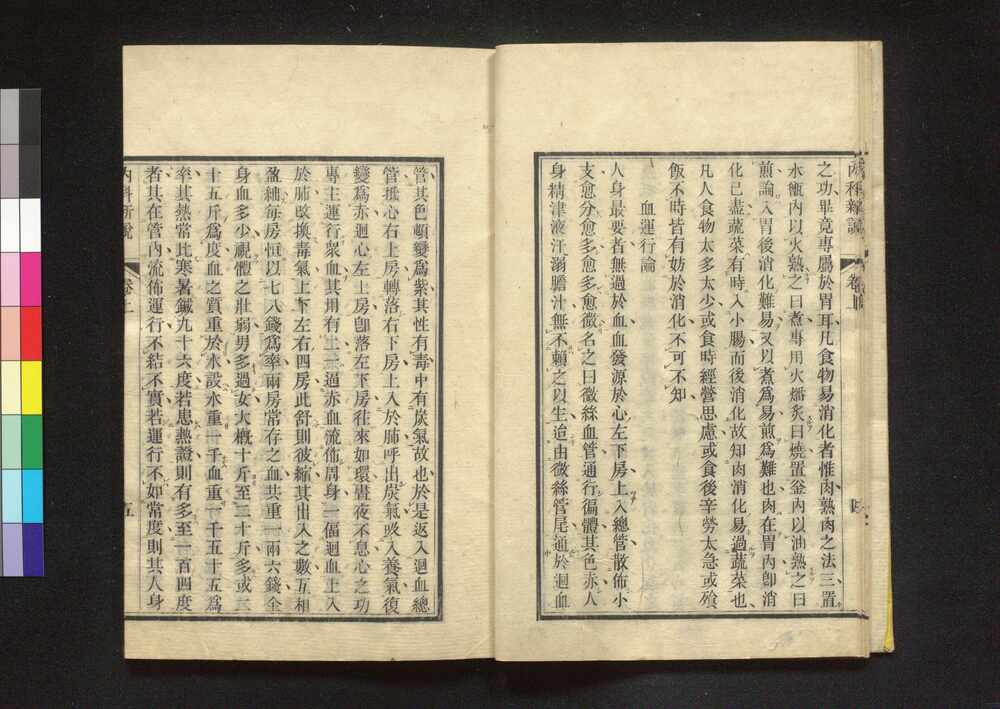 內科新說 卷上
之功畢竟專屬於胃耳凡食物易消化者惟肉熟肉之法三置
水甑內以火熟之曰煮專用火燔炙曰燒置釜內以油熟之曰
煎論入胃後消化難易又以煮爲易煎爲難也肉在胃內卽消
化已盡蔬菜有時入小腸而後消化故知肉消化易過蔬菜也
凡人食物太多太少或食時經營思慮或食後辛勞太急或飧
飯不時皆有妨於消化不可不知
血運行論
人身最要者無過於血血發源於心左下房上入總管散佈小
支愈分愈多愈多愈微名之曰微絲血管通行徧體其色赤人
身精津液汗溺膽汁無不賴之以生迨由微絲管尾通於迴血
管其色頓變爲紫其性有毒中有炭氣故也於是返入迴血總
管抵心右上房轉落右下房上入於肺呼出炭氣吸入養氣復
變爲赤迴心左上房卽落左下房往來如環晝夜不息心之功
專主運行衆血其用有二一逼赤血流佈周身一偪迴血上入
於肺改換毒氣上下左右四房此舒則彼縮其出入之數互相
盈絀每房恒以七八錢爲率兩房常存之血共重一兩六錢全
身血多少視體之壯弱男多過女大槪十斤至二十斤多或三
十五斤爲度血之質重於水設水重一千血重一千五十五爲
率其熱常比寒暑鍼九十六度若患熱證則有多至一百四度
者其在管內流佈運行不結不實若運行不如常度則其人身
內科新說 卷上 五